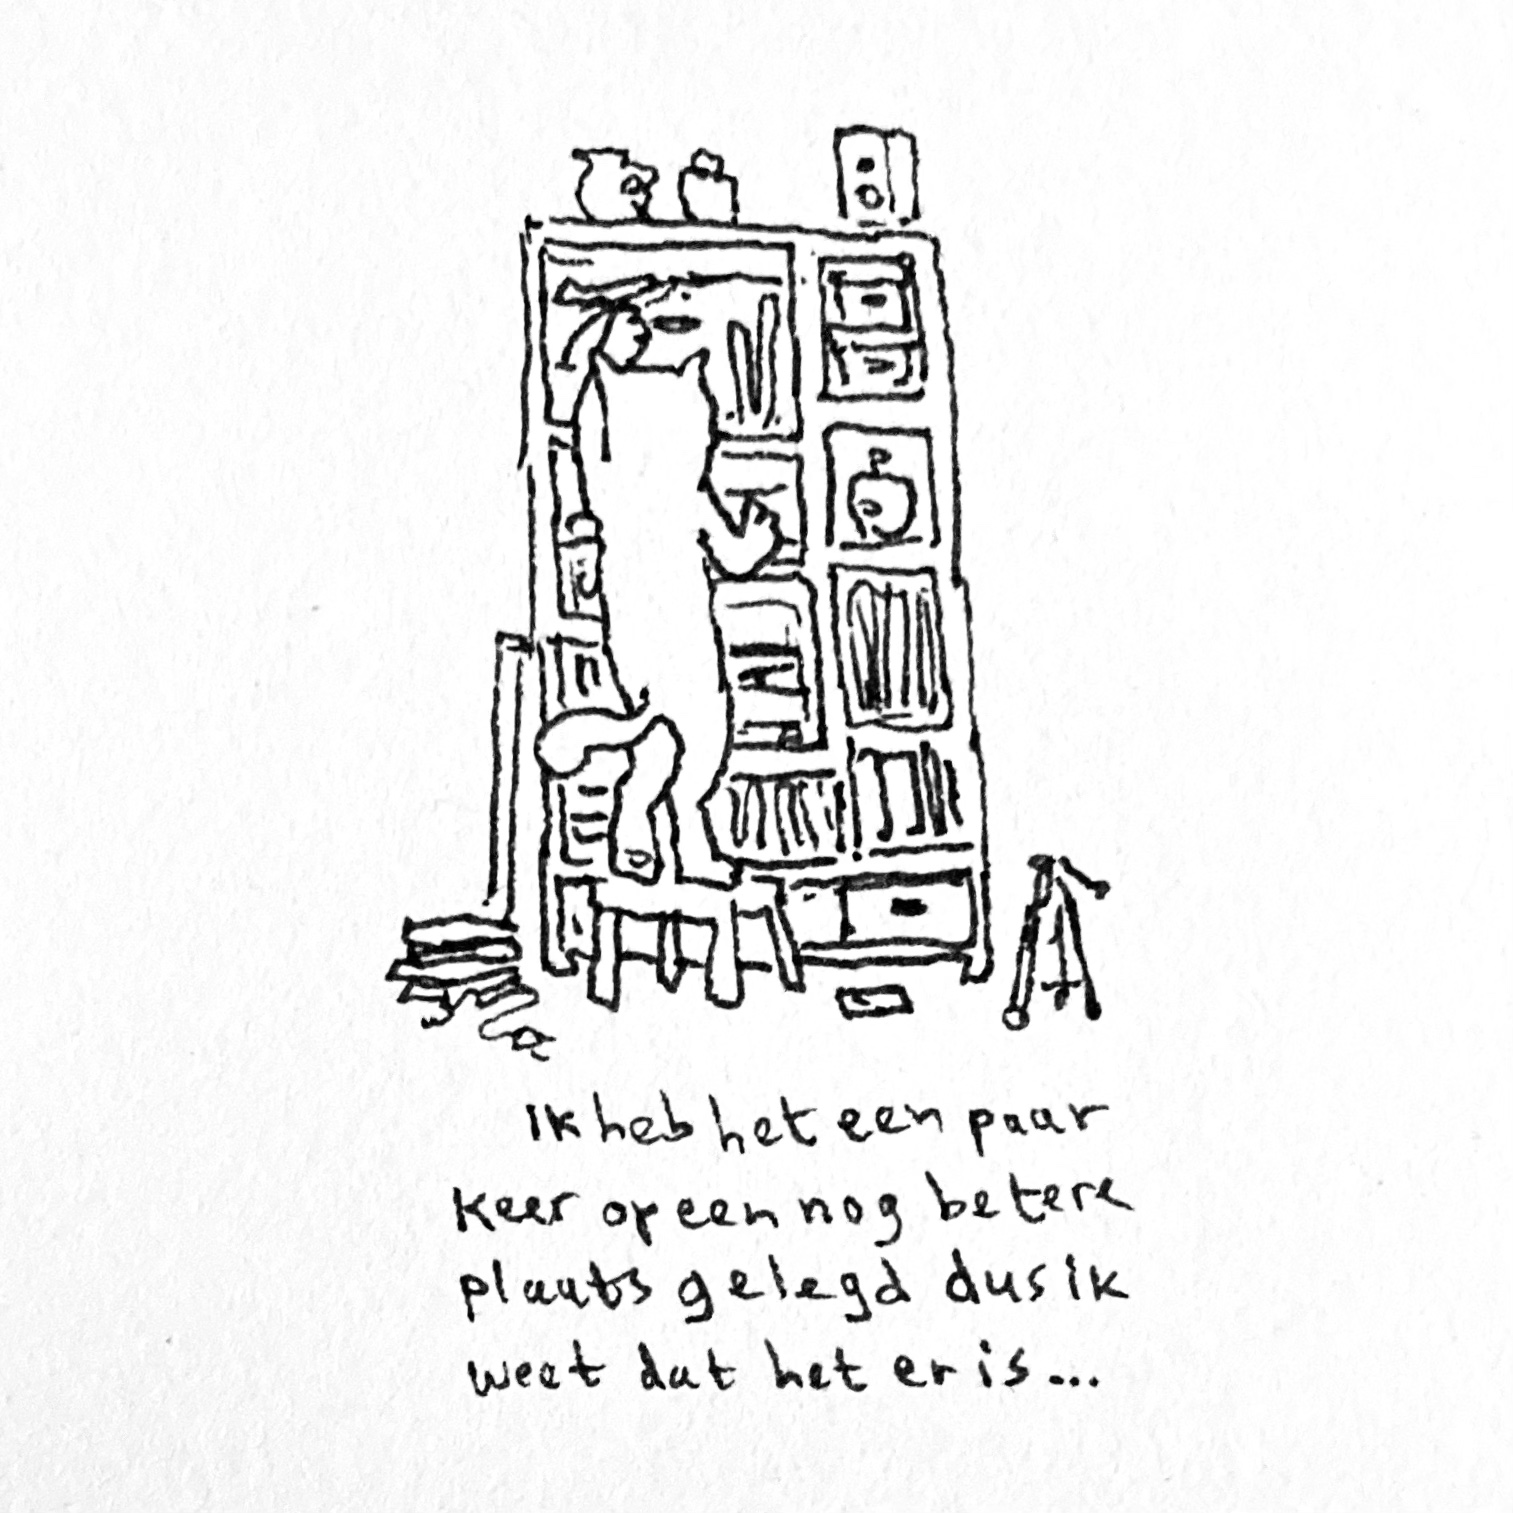 ik heb het een paar
keer op een nog betere
plaats gelegd dus ik
weet dat het er is...